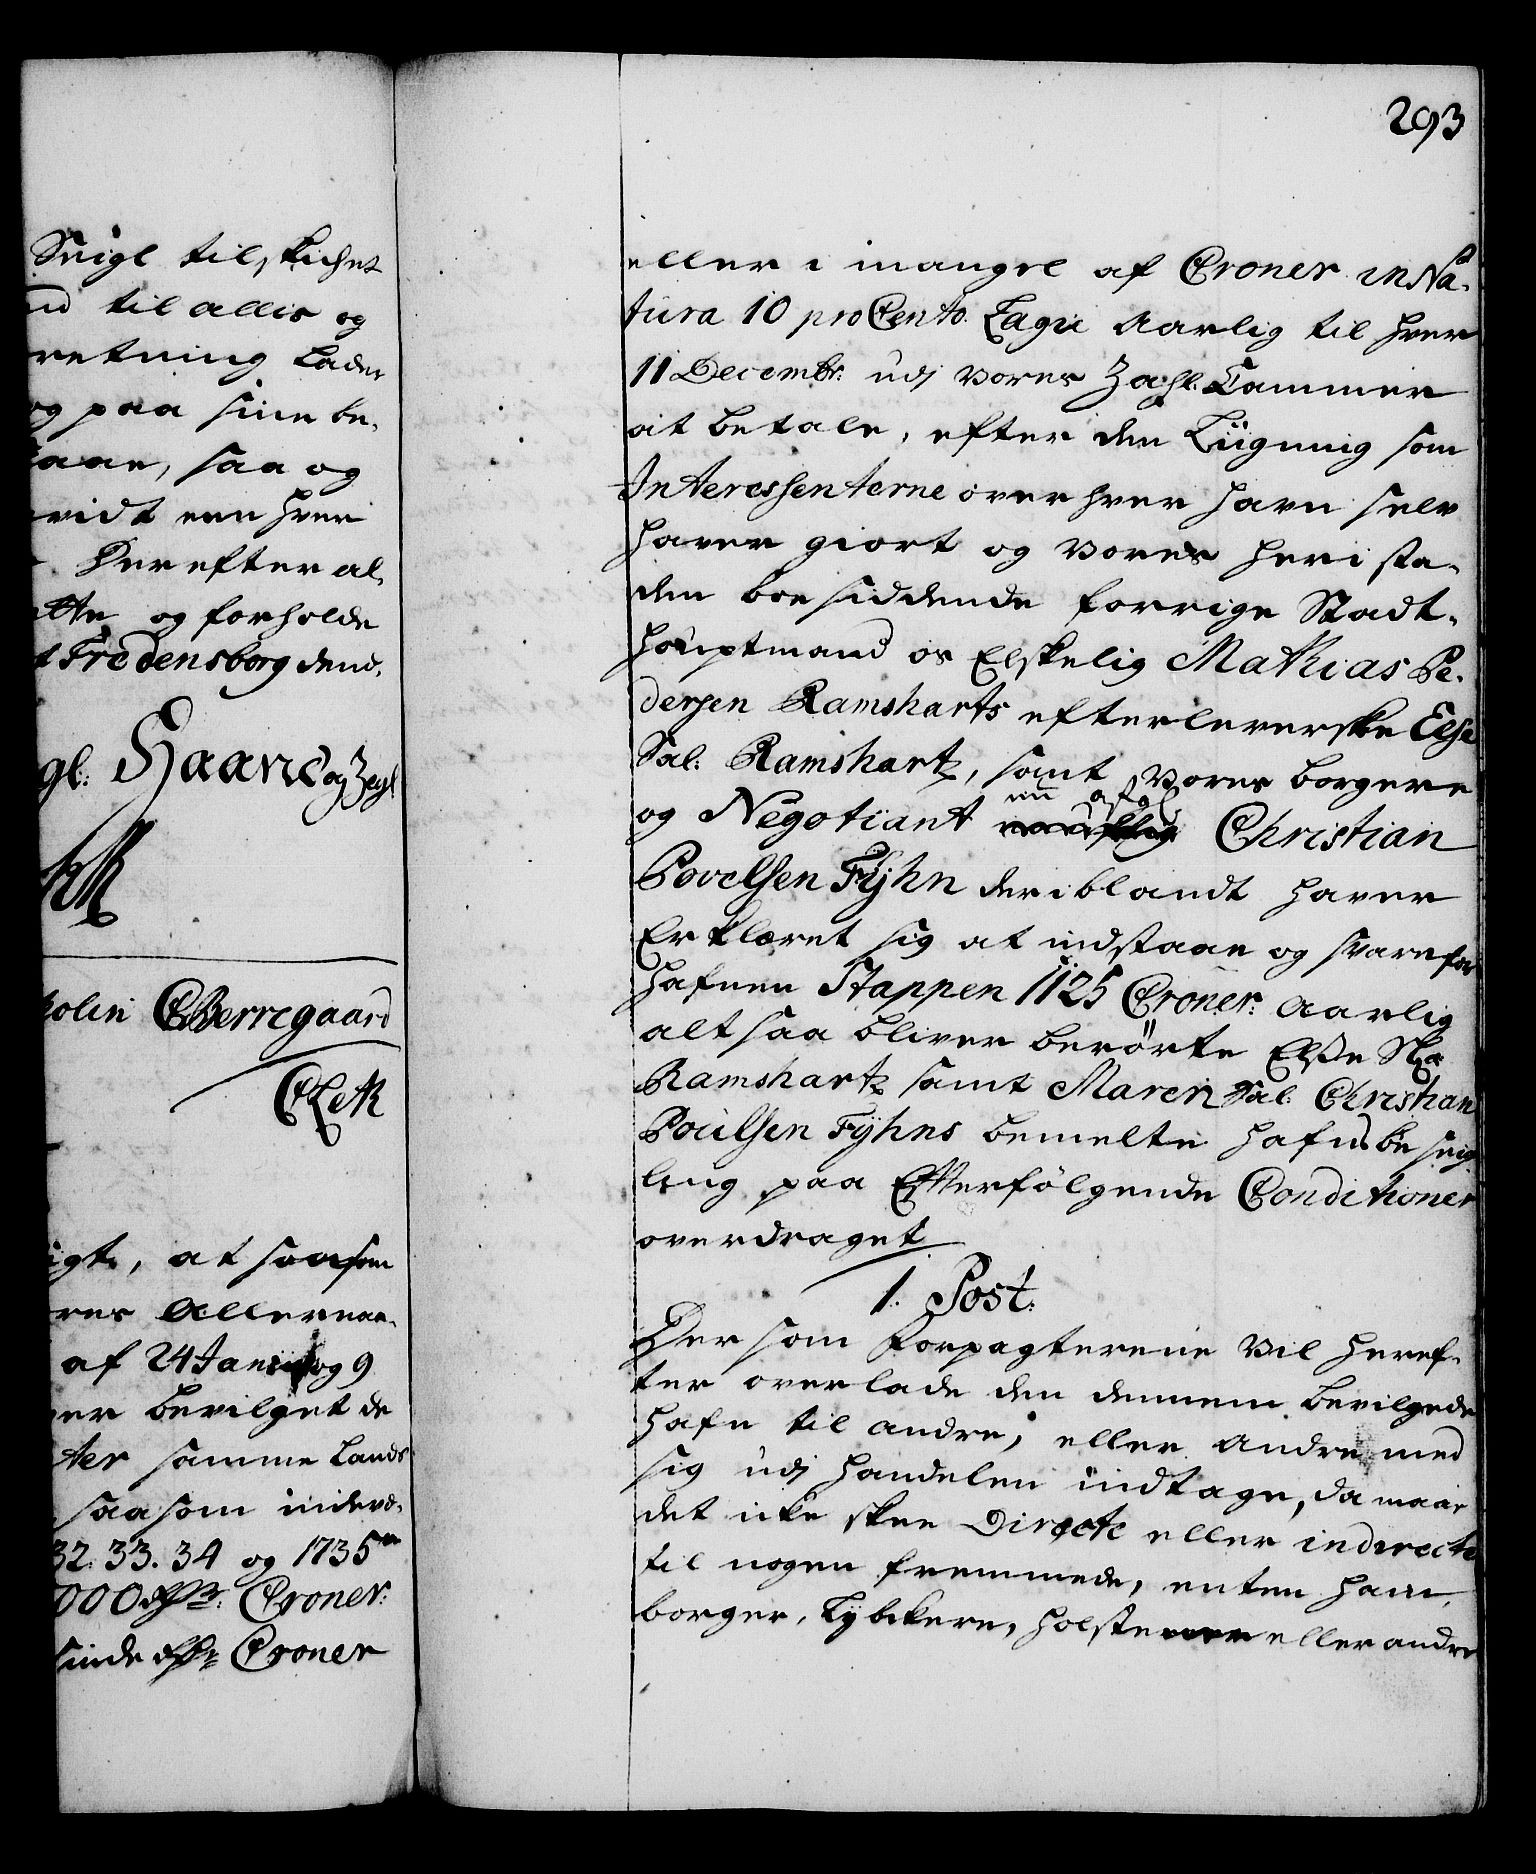 293
Seigl tilskichet
til allis og
retning Lader
og paa sine be,
saa og
vidt een hver
Derefter al,
og forholde
Fredensborg dend,
Haand og Zegl
CBerregaard
at saasom
res Allernaa-
af 24 Janu og 9
ver bevilget de
ter samme Lands
saasom inderø,
32. 33. 34 og 1735
000 Croner.
sinde Croner
eller i mangel af Croner in Na-
tura 10 pro Cento Lagie Aarlig til hver
11 Decembr: udj Vores Zahl Cammer
at betale, efter den Liigning som
Interessenterne over hver havn selv
haver giort og Vores her i sta-
den boesiddende forrige Stadt-
hauptmand os Elskelig Mathias Pe-
dersen Ramsharts efterleverske Else
Sal: Ramshartz, samt Vores borgere
og Negotiant nu afgl Christian
Povelsen Fÿhn deriblandt haver
Erklæret sig at indstaae og svare for
hafnen Stappen 1125 Croner. Aarlig
alt saa bliver berörte Elsse Sl
Ramshartz samt Maren Sal: Christian
Poulsen Fÿhns bemelte hafns beseig-
ling paa Efterfölgende Conditioner
overdraget
1. Post.
Der som Forpagterene Vil heref-
ter overlade den dennem bevilgede
hafn til andre, eller andre med
sig udj handelen indtage, da maae
det icke skee Directe eller indirecte
til nogen fremmede, enten Ham-
borger, Lybekere, Holstenere eller andre